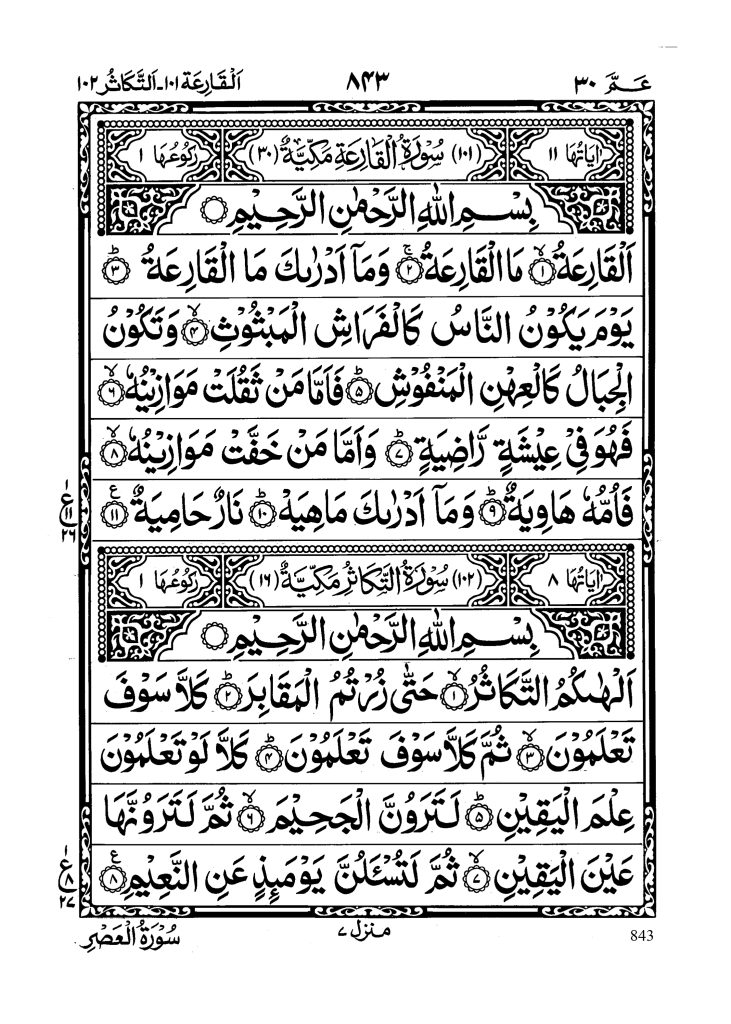 عَمَّ ۳۰ ۸۴۳ اَلْقَارِعَة ۱۰۱-اَلتَّكَاثُر ۱۰۲
اٰيَاتُهَا ۱۱ (۱۰۱) سُوْرَةُ الْقَارِعَةِ مَكِّيَّةٌ (۳۰) رُكُوْعُهَا ۱
بِسْمِ اللّٰهِ الرَّحْمٰنِ الرَّحِيْمِ
اَلْقَارِعَةُ ۙ‏﴿۱﴾ مَا الْقَارِعَةُ ۚ‏﴿۲﴾ وَمَاۤ اَدْرٰىكَ مَا الْقَارِعَةُ ؕ‏﴿۳﴾
يَوْمَ يَكُوْنُ النَّاسُ كَالْفَرَاشِ الْمَبْثُوْثِ ۙ‏﴿۴﴾ وَتَكُوْنُ
الْجِبَالُ كَالْعِهْنِ الْمَنْفُوْشِ ؕ‏﴿۵﴾ فَاَمَّا مَنْ ثَقُلَتْ مَوَازِيْنُهٗ ۙ‏﴿۶﴾
فَهُوَ فِيْ عِيْشَةٍ رَّاضِيَةٍ ؕ‏﴿۷﴾ وَاَمَّا مَنْ خَفَّتْ مَوَازِيْنُهٗ ۙ‏﴿۸﴾
فَاُمُّهٗ هَاوِيَةٌ ؕ‏﴿۹﴾ وَمَاۤ اَدْرٰىكَ مَاهِيَهْ ؕ‏﴿۱۰﴾ نَارٌ حَامِيَةٌ ۧ‏﴿۱۱﴾
۱ ع ۱۱ ۲۶
اٰيَاتُهَا ۸ (۱۰۲) سُوْرَةُ التَّكَاثُرِ مَكِّيَّةٌ (۱۶) رُكُوْعُهَا ۱
بِسْمِ اللّٰهِ الرَّحْمٰنِ الرَّحِيْمِ
اَلْهٰىكُمُ التَّكَاثُرُ ۙ‏﴿۱﴾ حَتّٰى زُرْتُمُ الْمَقَابِرَ ؕ‏﴿۲﴾ كَلَّا سَوْفَ
تَعْلَمُوْنَ ۙ‏﴿۳﴾ ثُمَّ كَلَّا سَوْفَ تَعْلَمُوْنَ ؕ‏﴿۴﴾ كَلَّا لَوْ تَعْلَمُوْنَ
عِلْمَ الْيَقِيْنِ ؕ‏﴿۵﴾ لَتَرَوُنَّ الْجَحِيْمَ ۙ‏﴿۶﴾ ثُمَّ لَتَرَوُنَّهَا
عَيْنَ الْيَقِيْنِ ۙ‏﴿۷﴾ ثُمَّ لَتُسْـَٔلُنَّ يَوْمَىِٕذٍ عَنِ النَّعِيْمِ ۧ‏﴿۸﴾
۱ ع ۸ ۲۷
843 منزل ۷ سُوْرَةُ الْعَصْرِ